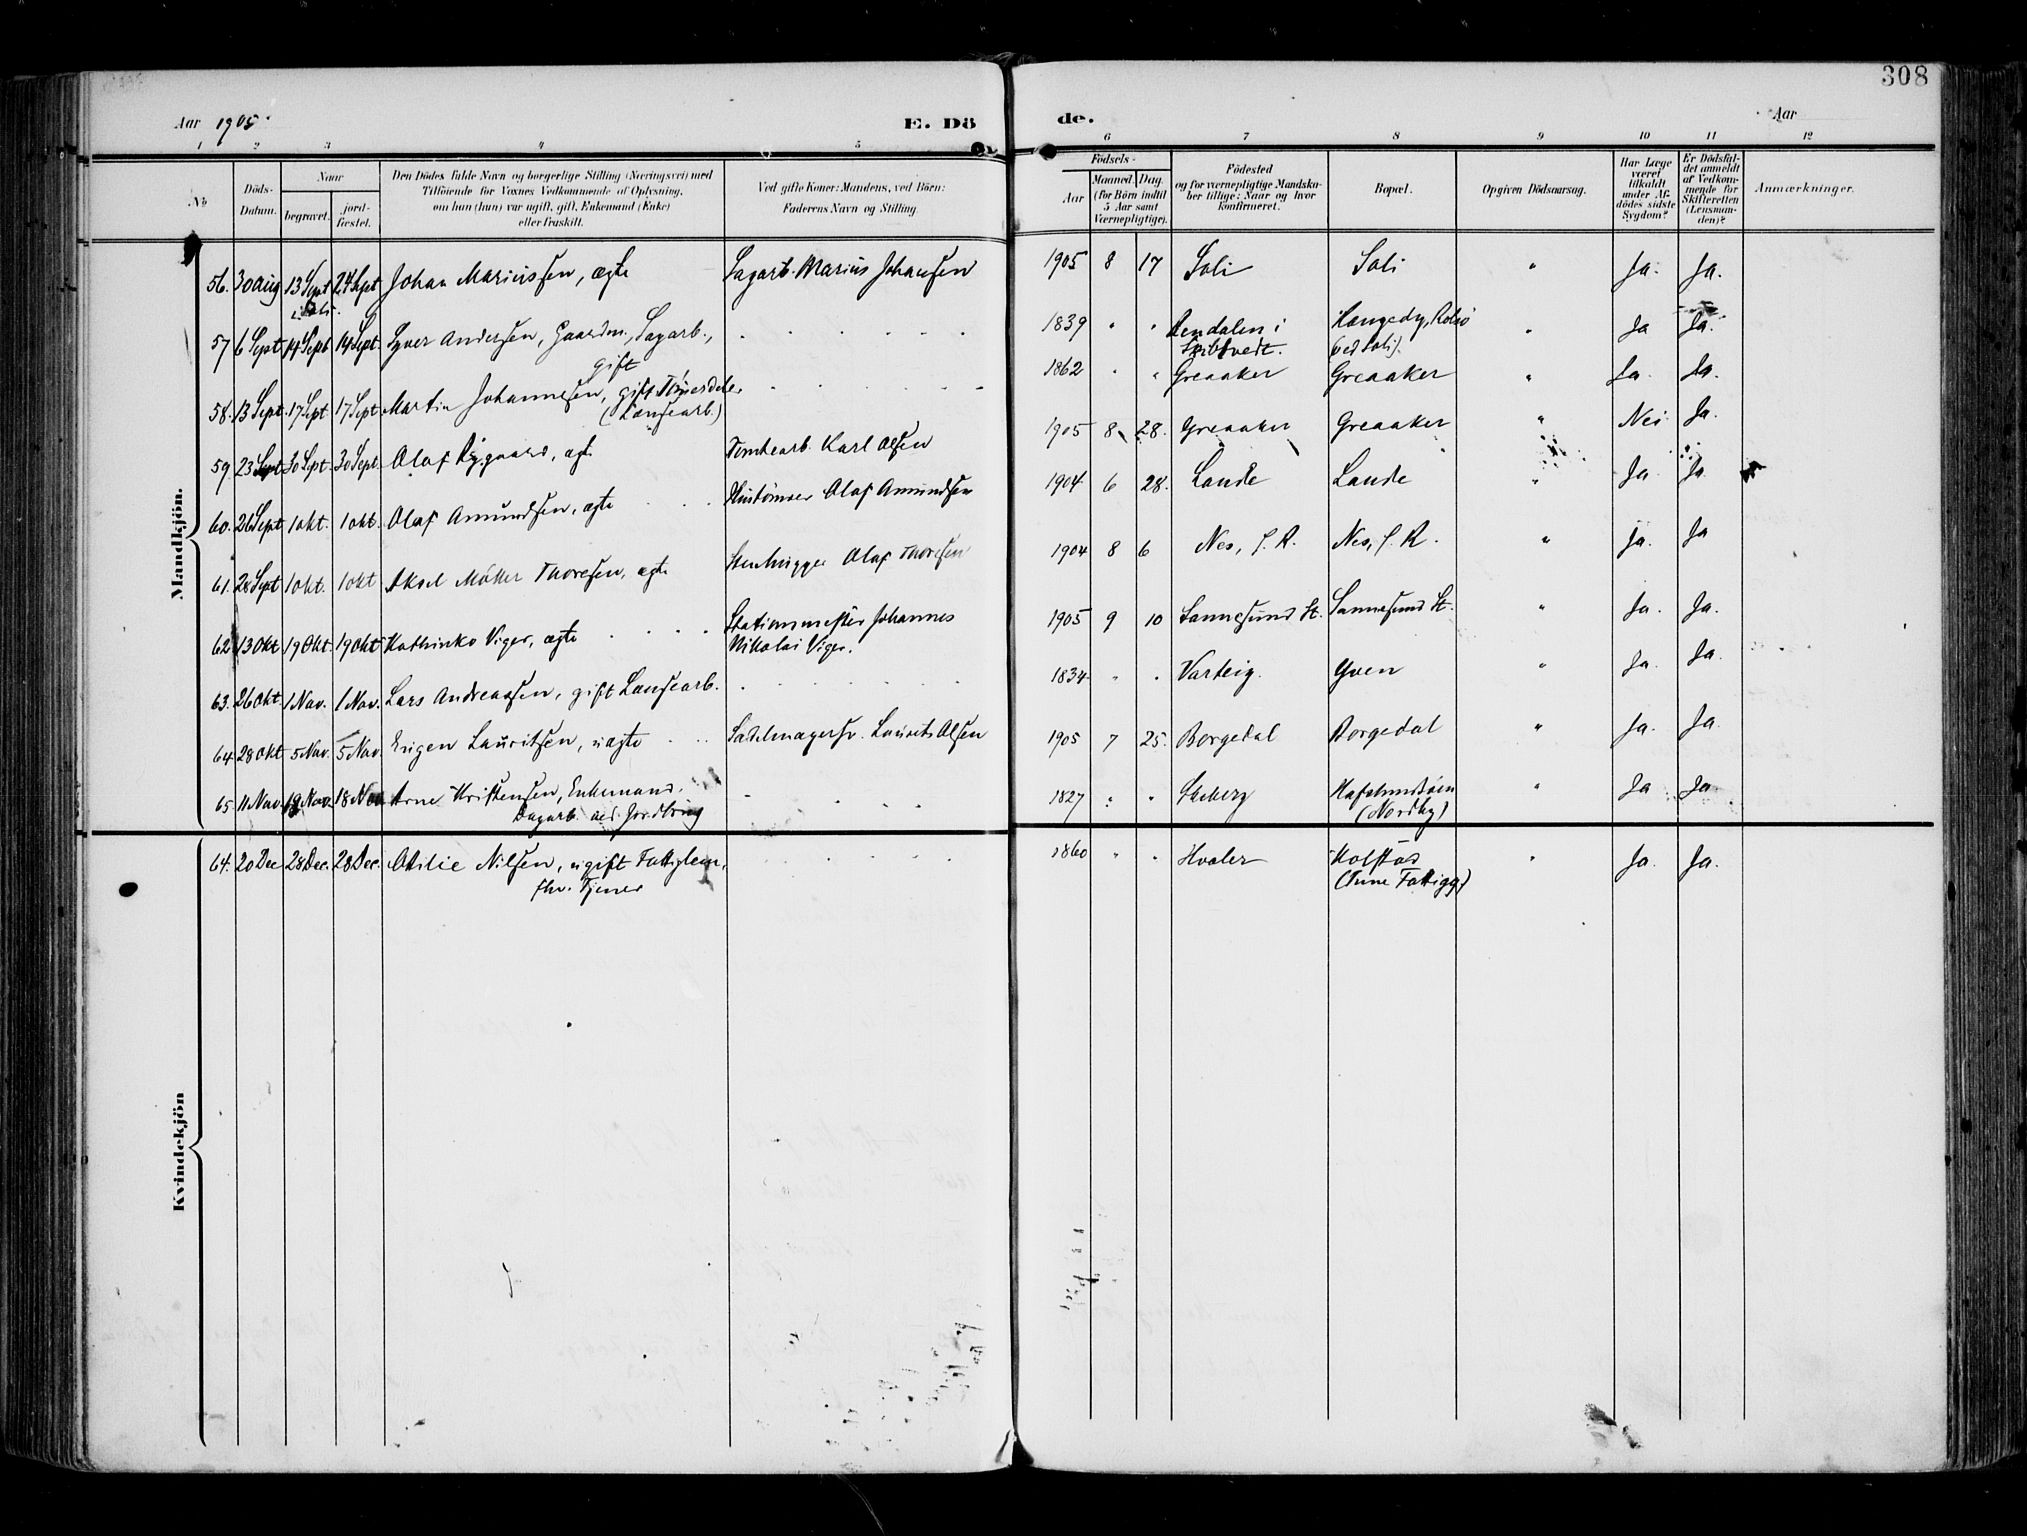 308
Aar 1905.
E. Dö
de.
Aar
1 2 3 4 5 6 7 8 9 10 11 12
No
Döds-
Datum.
Naar
begravet.
jord-
fæstet.
Den Dödes fulde Navn og borgerlige Stilling (Næringsvei) med
Tilföiende for Voxnes Vedkommende af Oplysning,
om han (hun) var ugift, gift, Enkemand (Enke)
eller fraskilt.
Ved gifte Koner: Mandens, ved Börn:
Faderens Navn og Stilling.
Födsels-
Aar
Maaned. Dag
(for Börn indtil
5 Aar samt
Værnepligtige).
Födested
og for værnepligtige Mandska-
ber tillige: Naar og hvor
konfirmeret.
Bopæl.
Opgiven Dödsaarsag.
Har Læge
været
tilkaldt
under Af-
dödes sidste
Sygdom?
Er Dödsfal-
det anmeldt
af Vedkom-
mende for
Skifteretten
(Lensman-
den)?
Anmærkninger.
Mandkjön.
56. 30 Aug 13 Sept 24 Sept Johan Mariussen, ægte Sagarb. Marius Johansen 1905 8 17 Soli Soli " Ja. Ja.
i Soli.
57 6 Sept 14 Sept 14 Sept. Syver Andersen, Gaardm., Sagarb., 1839 " " i Hangedy, Rolsö " Ja Ja.
gift Skibtvedt. ved Soli).
58. 13 Sept. 17 Sept 17 Sept Martin Johannesen, gift 1862 " " Greaaker Greaaker " Ja. Ja.
(Løusearb.)
59. 23 Sept 30 Sept 30 Sept. Olaf Tomtearb. Karl Olsen 1905 8 28. Greaaker Greaaker " Nei Ja.
60. 26 Sept 1 Okt. 1 Okt. Olaf Amundsen, ægte Olaf Amundsen 1904 6 28. Lande Lande " Ja Ja
61. 28 Sept 1 Okt. 1 Okt Aksel Möller Thoresen, ægte Stenhugger Olaf Thoresen 1904 8 6 Nes, S. R. Nes, S. R. " Ja. Ja
62 13 Okt 19 Okt. 19 Okt Kathinka Viger, ægte Stationsmester Johannes 1905 9 10 Sannesund St. Sannesund St. " Ja. Ja.
Nikolai Viger.
63. 26 Okt. 1 Nov. 1 Nov. Lars Andreassen, gift Løusearb. 1834 " " Varteig. Yven " Ja. Ja.
64. 28 Okt 5 Nov. 5 Nov. Eugen Lauritsen, uægte Sadelmagersv. Laurits Olsen 1905 7 25. Borgedal Borgedal " Ja. Ja.
65. 11 Nov. 19 Nov. 18 Nov Arne Kristensen, Enkemand. 1827 " " Skeberg Hafslundsöen " Ja Ja
Dagarb. ved (Nordby)
Kvindekjön
64. 20 Dec 28 Dec. 28 Dec. Otilie Nilsen, ugift Fattiglem, 1860 " " Hvaler Kolstad " Ja. Ja.
fhv. Tjener (Tune Fattigg.)